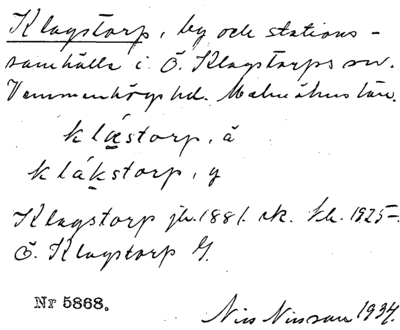 Klagstorp, by och stations-
samhälle i Ö. Klagstorps sn.
Vemmenhögs hd. Malmöhus län.
klástorp, ä
klákstorp, y
Klagstorp jb. 1881. sk. tk. 1925=
Ö. Klagstorp G.
Nr 5868.
Nils Nilsson 1934.